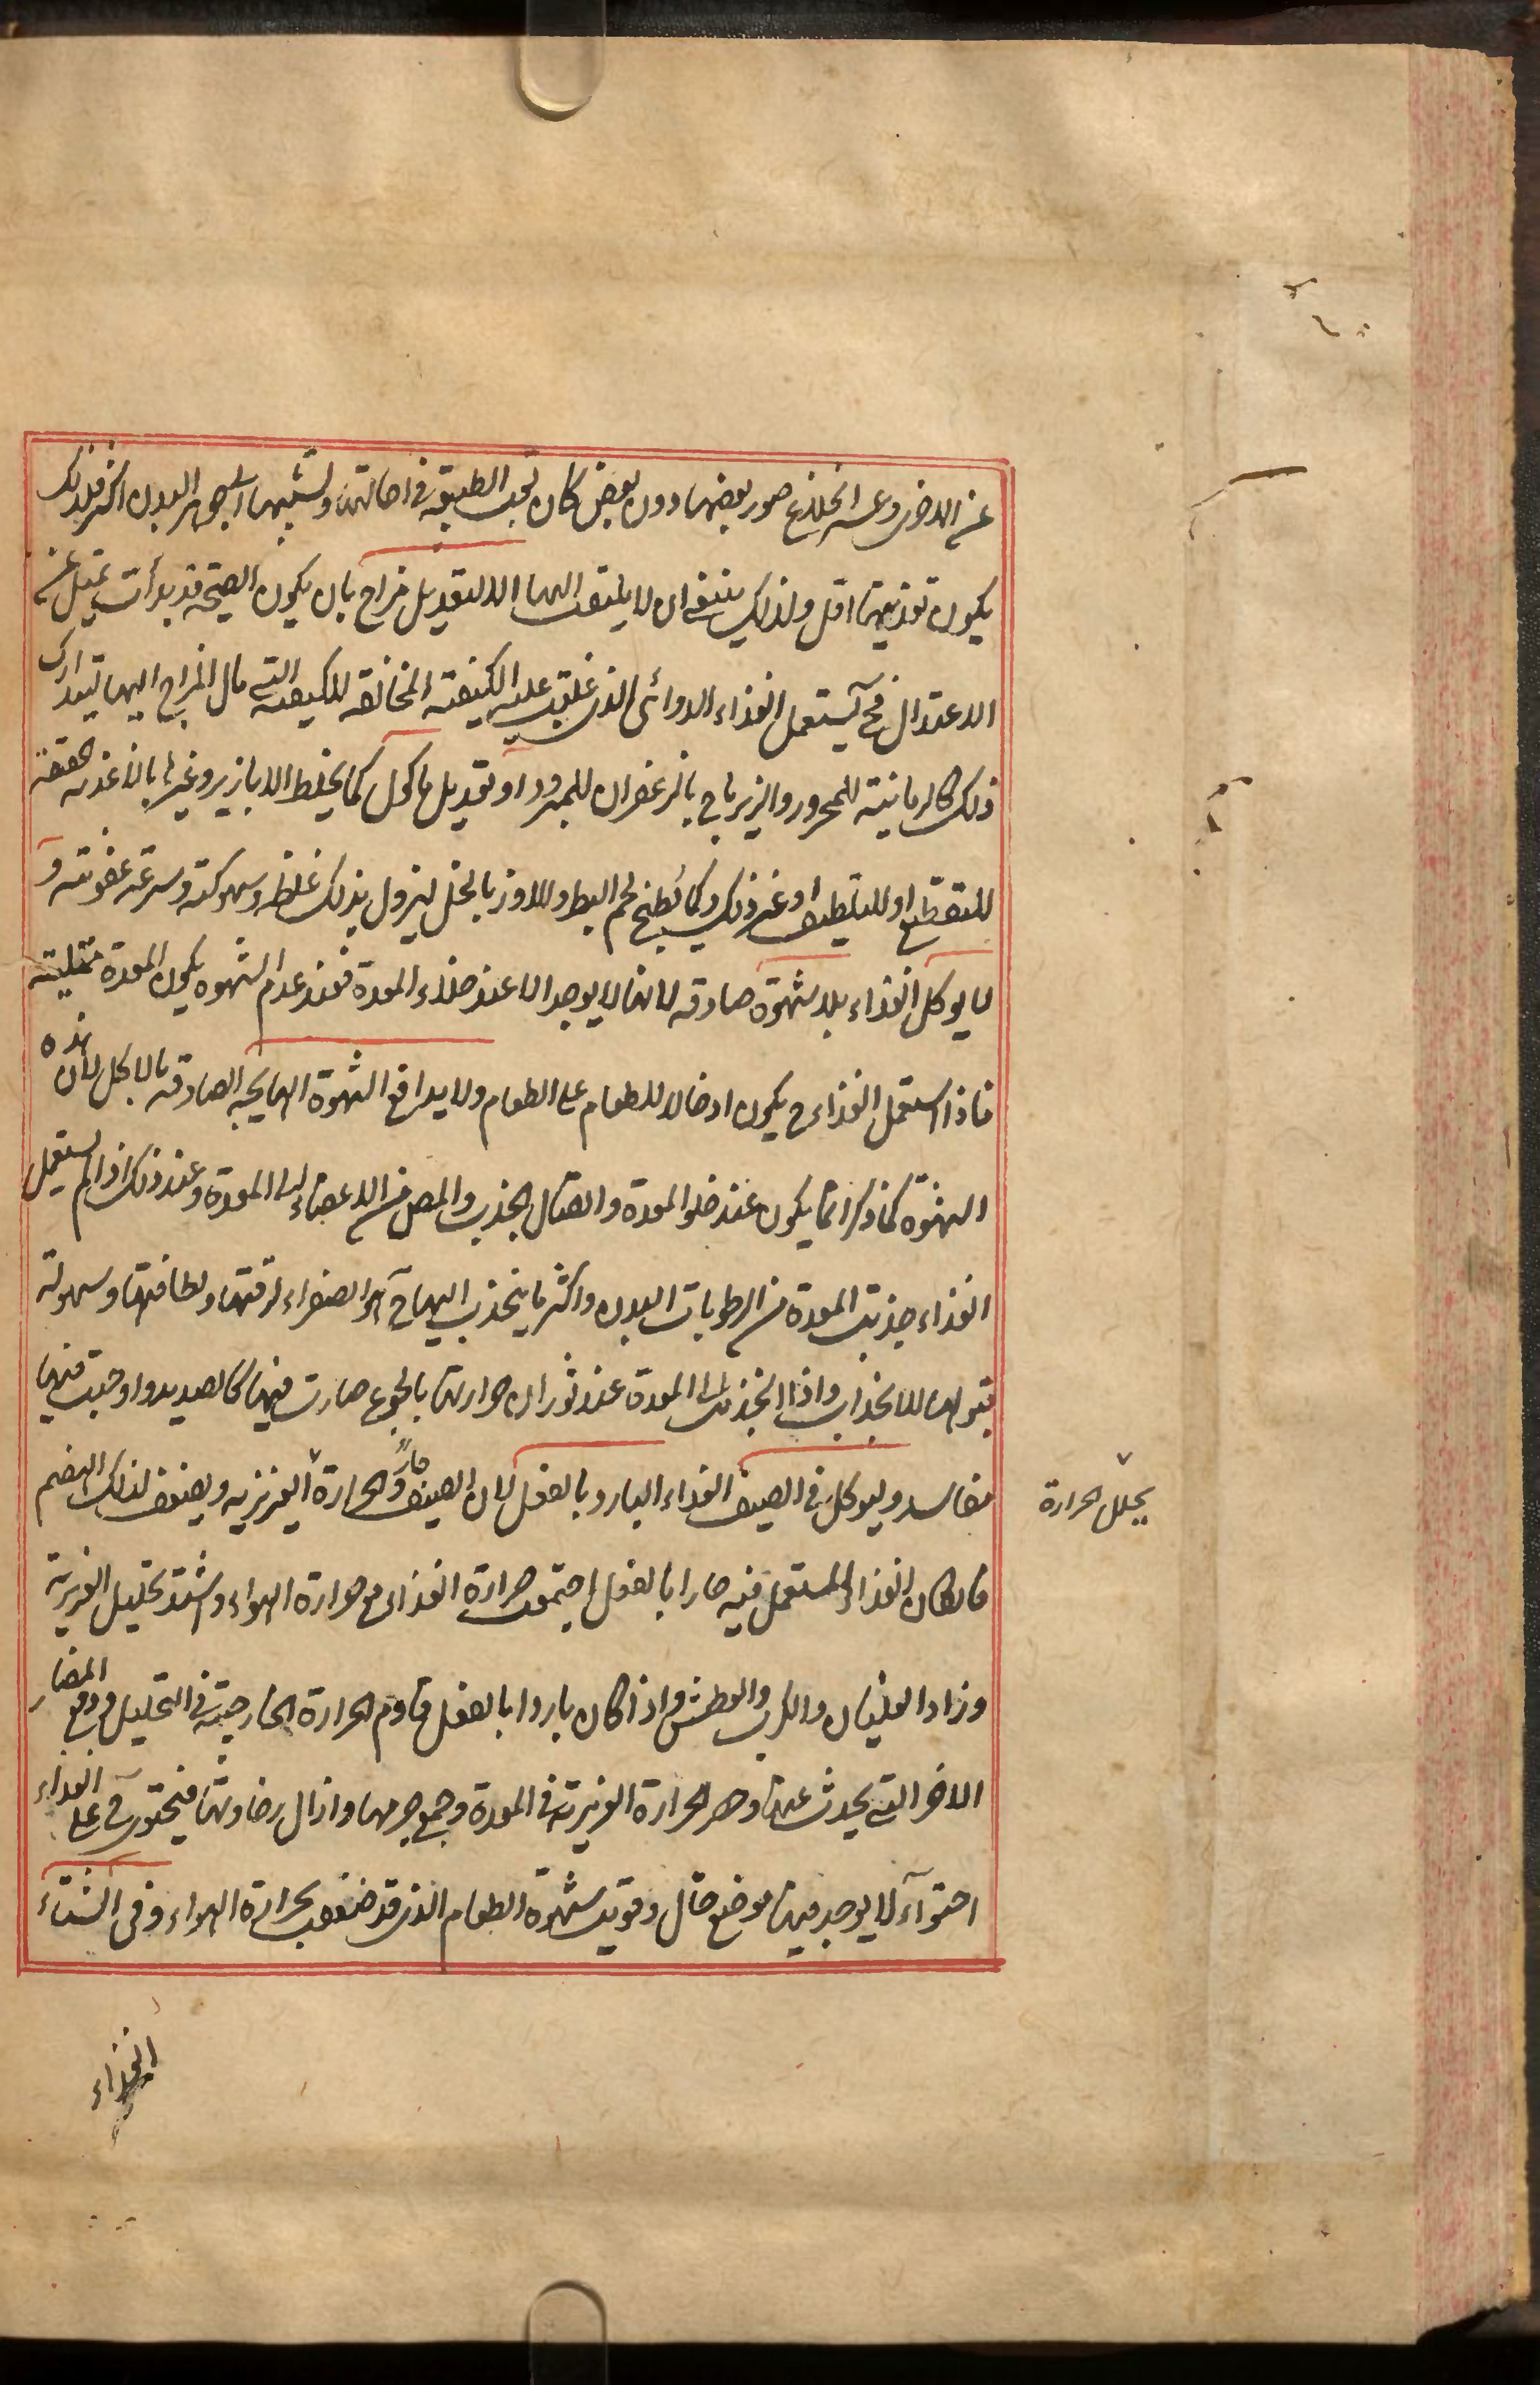 عن الاخر وعسر انخلاع صور بعضها دون بعض كان تعب الطبيعة في احالتها وتشبيهها الى جوهر البدن اكثر فلذلك
يكون تغذيتها اقل ولذلك ينبغي ان لا يلتفت اليها الا لتعديل مزاج بان يكون الصحة قد بدأت تميل عن
الاعتدال فح يستعمل الغذاء الدوائى الذى غلبت عليه الكيفية المخالفة للكيفية التى مال المزاج اليها ليتدارك
ذلك كالرمانية للمحرور والزيرباج بالزعفران للمبرود او تعديل ماكول كما يخلط الابازير وغيرها بالاغذية
للتقطيع او للتلطيف او غير ذلك وكما يطبخ لحم البط والاوز بالخل ليزول بذلك غلظه وسهوكته وسرعة عفونته و
لا يوكل الغذاء بلا شهوة صادقه لانها لا يوجد الا عند خلاء المعدة فعند عدم الشهوه يكون المعدة ممتلية
فاذا استعمل الغذاء ح يكون ادخالا للطعام على الطعام ولا يدافع الشهوة الهايجه الصادقه بالاكل لان هذه
الشهوة كما ذكر انما يكون عند خلو المعدة واتصال الجذب والمص من الاعضاء الى المعدة وعند ذلك اذا لم يستعمل
الغذاء جذبت المعدة من الرطوبات البدن واكثر ما ينجذب اليها ح هو الصفراء لرقتها ولطافتها وسهولة
قبولها للانجذاب واذا انجذبت الى المعدة عند ثوران حرارتها بالجوع صارت فيها كالصديد واوجبت فيها
مفاسد وليوكل في الصيف الغذاء البارد بالفعل لان الصيف حارّ والحرارة الغريزيه ويضعف لذلك الهضم
يحلل الحرارة
فان كان الغذاء المستعمل فيه حارا بالفعل اجتمعت حرارة الغذاء مع حرارة الهواء واشتد تحليل الغريزية
وزاد الغليان والكرب والعطش واذا كان باردا بالفعل قاوم الحرارة الخارجية في التحليل ودفع المضار
الاخر التى يحدث عنها وحصر الحرارة الغزيرية في المعدة وجمع جرمها وازال رخاوتها فيحتوى ح على الغذاء
احتوآء لا يوجد فيها موضع خال وقويت شهوة الطعام الذى قد ضعفت بحرارة الهواء وفى الشتاء
الغذاء